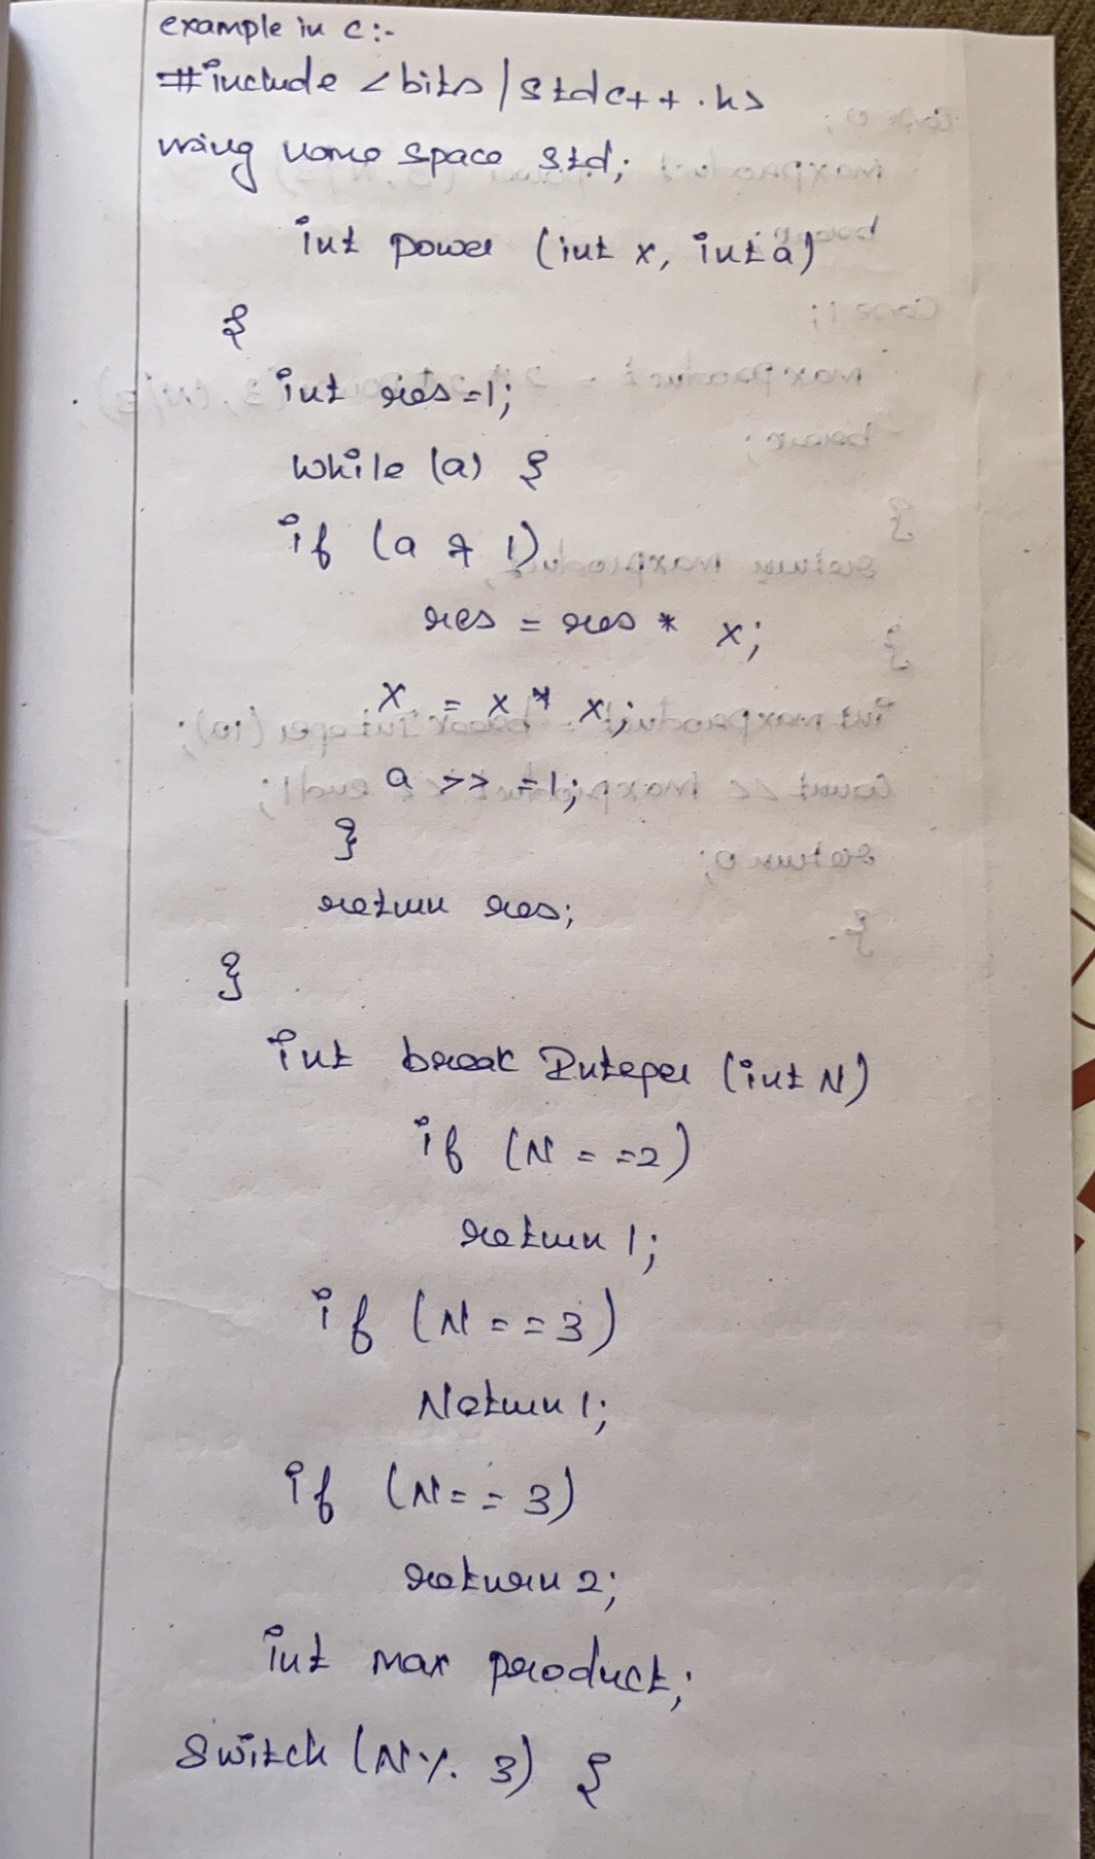 example in c:-
#include <bits/stdc++.h>
using name space std;
int power (int x, int a)
{
int res=1;
while (a) {
if (a & 1)
res = res * x;
x = x * x;
a >> =1;
}
return res;
}
int break Integer (int N)
if (N = =2)
return 1;
if (N = =3)
Return 1;
if (N = = 3)
return 2;
int max product;
Switch (N % 3) {